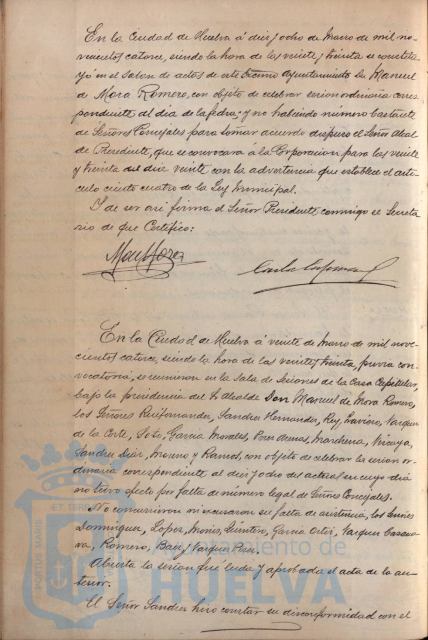 En la Ciudad de Huelva á diez y ocho de Marzo de mil no-
vecientos catorce, siendo la hora de las veinte y treinta se constitu-
yó en el Salon de actos de este Excmo Ayuntamiento Dn Manuel
de Mora Romero, con objeto de celebrar sesion ordinaria corres-
pondiente al dia de la fecha; y no habiendo número bastante
de Señores Concejales para tomar acuerdo dispuso el Señor Alcal
de Presidente, que se convocara á la Corporacion para las veinte
y treinta del dia veinte con la advertencia que establece el artí-
culo ciento cuatro de la Ley Municipal.
Y de ser así firma el Señor Presidente conmigo el Secreta
rio de que Certifico:
En la Ciudad de Huelva á veinte de Marzo de mil nove-
cientos catorce, siendo la hora de las veinte y treinta, previa con-
vocatoria, se reunieron en la Sala de Sesiones de la Casa Capitular,
bajo la presidencia del Sr Alcalde Don Manuel de Mora Romero,
los Señores Ruifernandez, Sanchez Hernandez, Rey, Vazquez
de la Corte, Soto, Garcia Morales, Marchena, Vizcaya,
Moreno y Ramos, con objeto de celebrar la sesion or-
dinaria correspondiente al diez y ocho del actual en cuyo dia
no tuvo efecto por falta de número legal de Señores Concejales.
No concurrieron ni excusaron su falta de asistencia, los Señores
Dominguez, Lopez, Quintero, Garcia Ortiz, Vazquez
Romero, Baez y Vazquez Perez.
Abierta la sesion fué leida y aprobada el acta de la an-
terior.
El Señor Sanchez hizo constar su disconformidad con el
PORTUS MARIS
ET TERRE
Ayuntamiento de
HUELVA